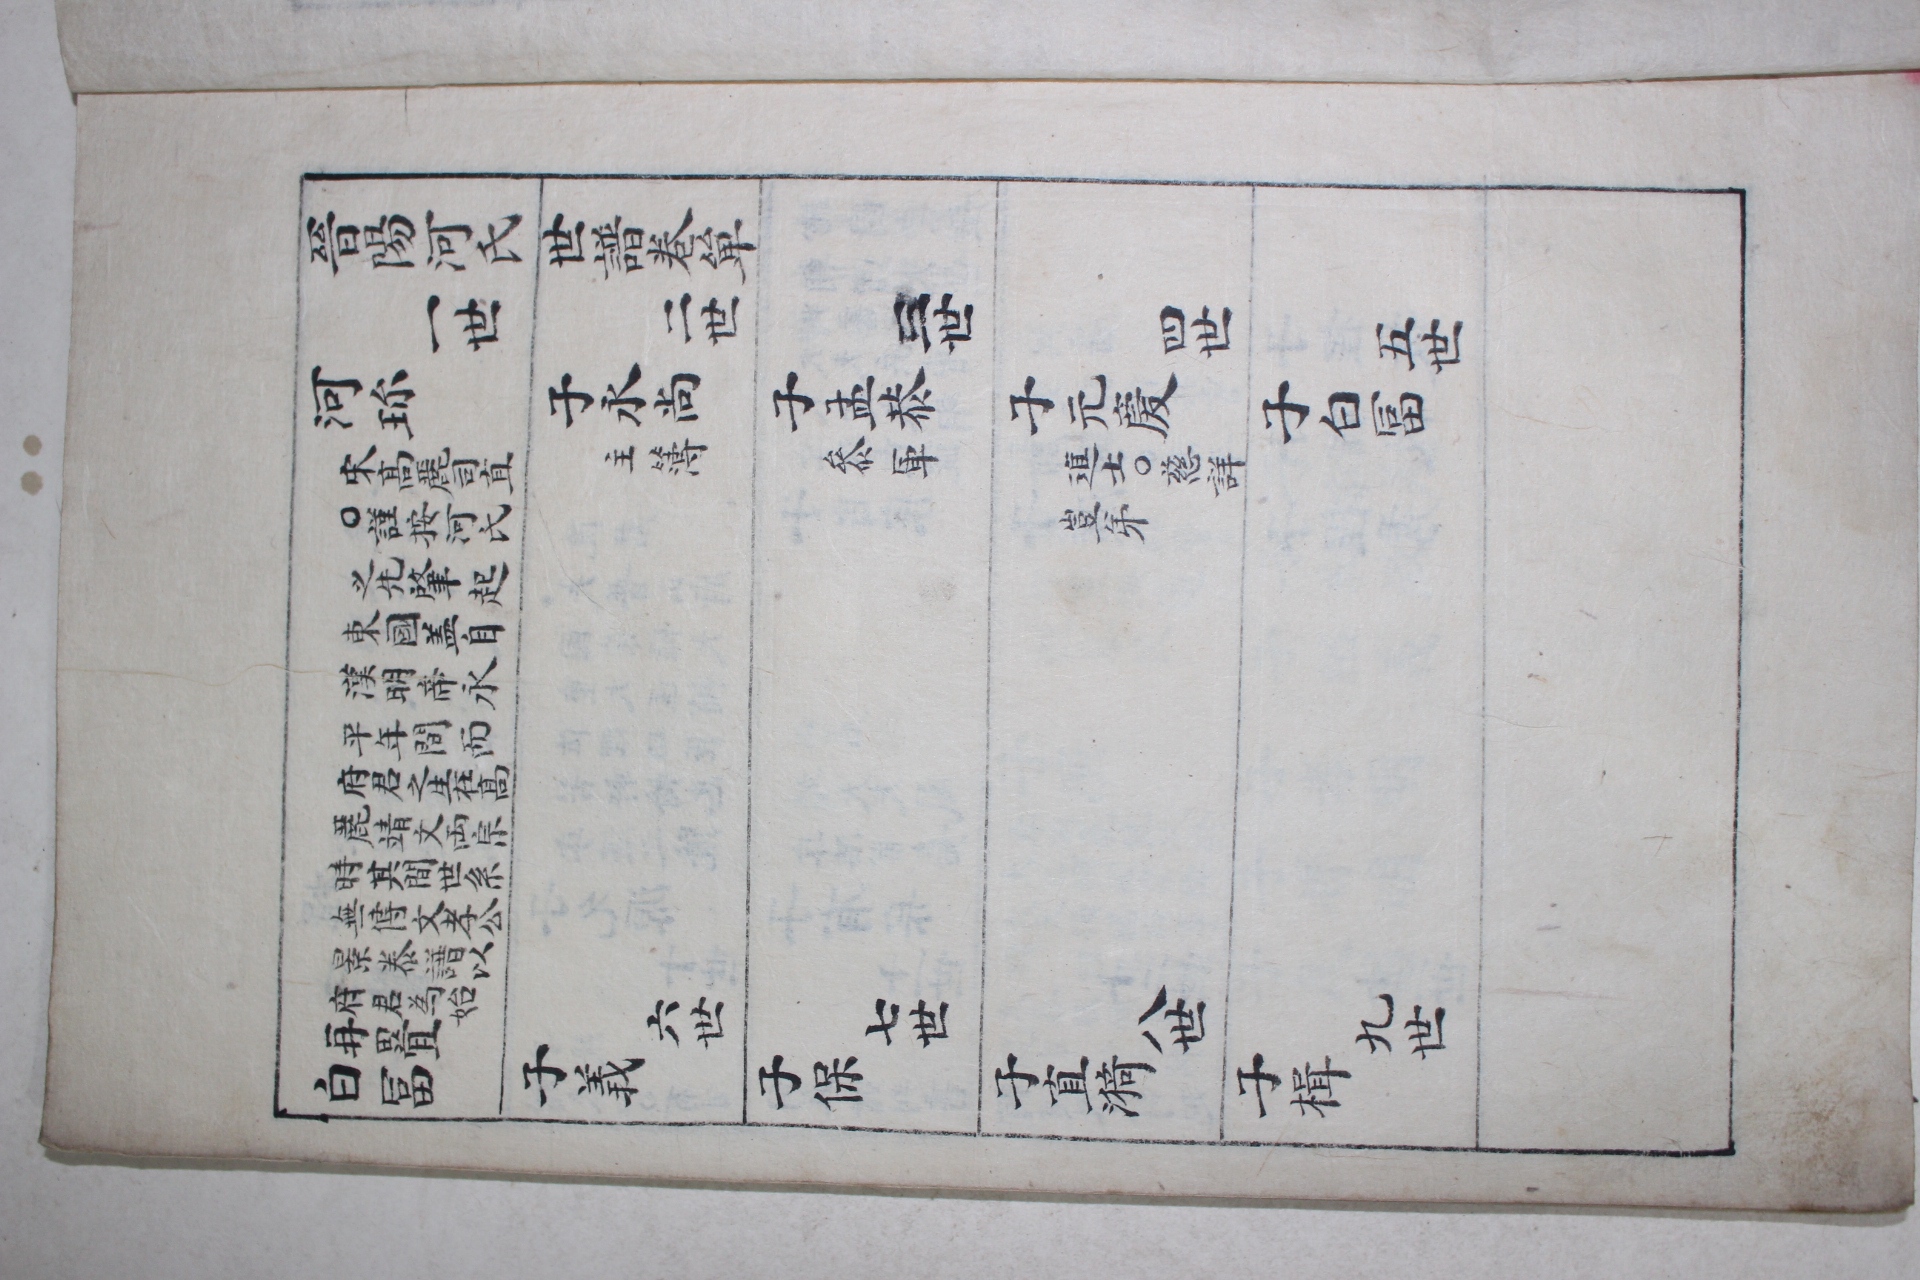 晉陽河氏世譜卷單
一世
河珎
宋高麗司直
〇謹按河氏
之先肇起
東國盖自
漢明帝永
平年間而
府君之生在高
麗靖文兩宗
時其間世系
無傳文孝公
景泰譜以
府君為始
再疊
白冨
二世
子永尚
主簿
六世
子義
三世
子孟恭
叅軍
七世
子保
四世
子元慶
進士〇慈詳
豈弟
八世
子直漪
五世
子白冨
九世
子楫